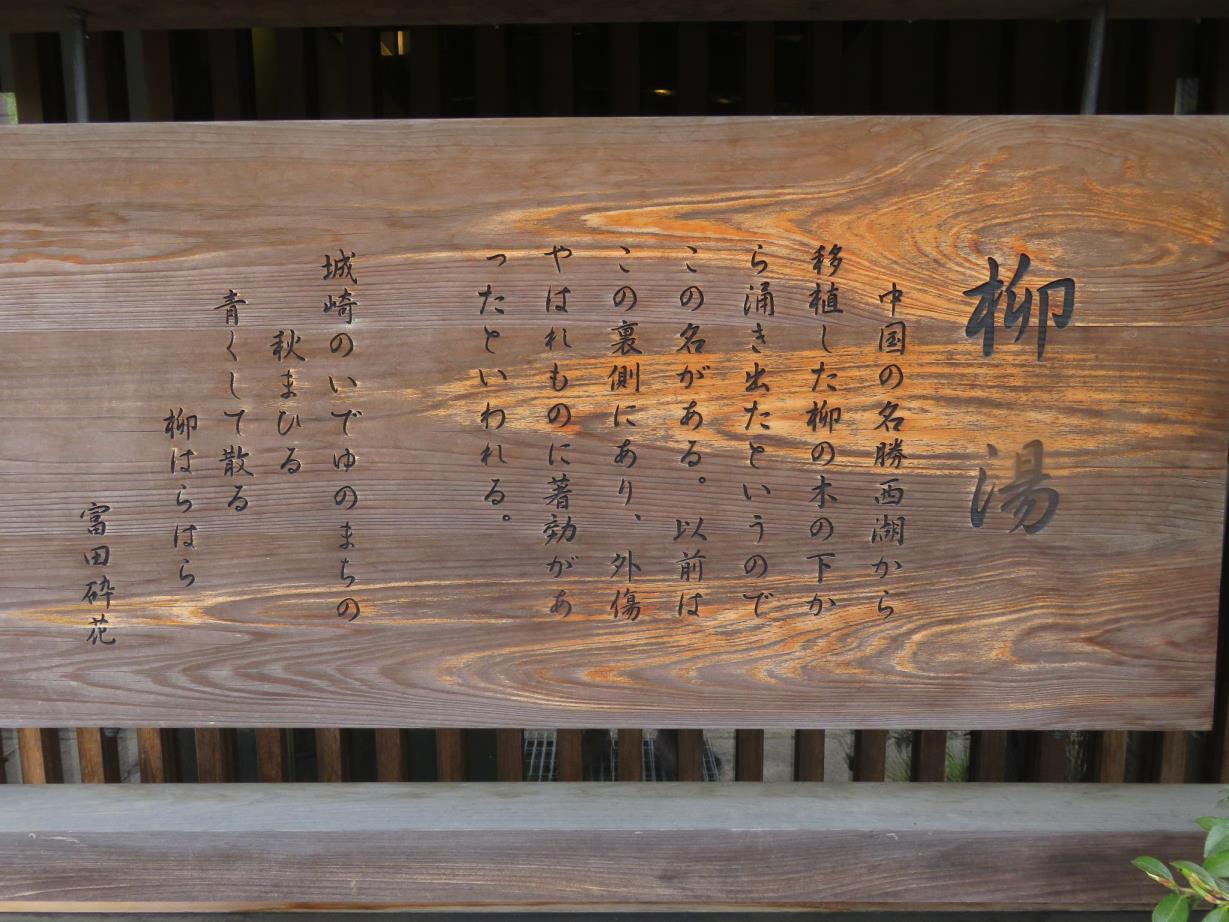 柳湯
中国の名勝西湖から
移植した柳の木の下か
ら涌き出たというので
この名がある。以前は
この裏側にあり、外傷
やはれものに著効があ
ったといわれる。
城崎のいでゆのまちの
秋まひる
青くして散る
柳はらはら
富田砕花